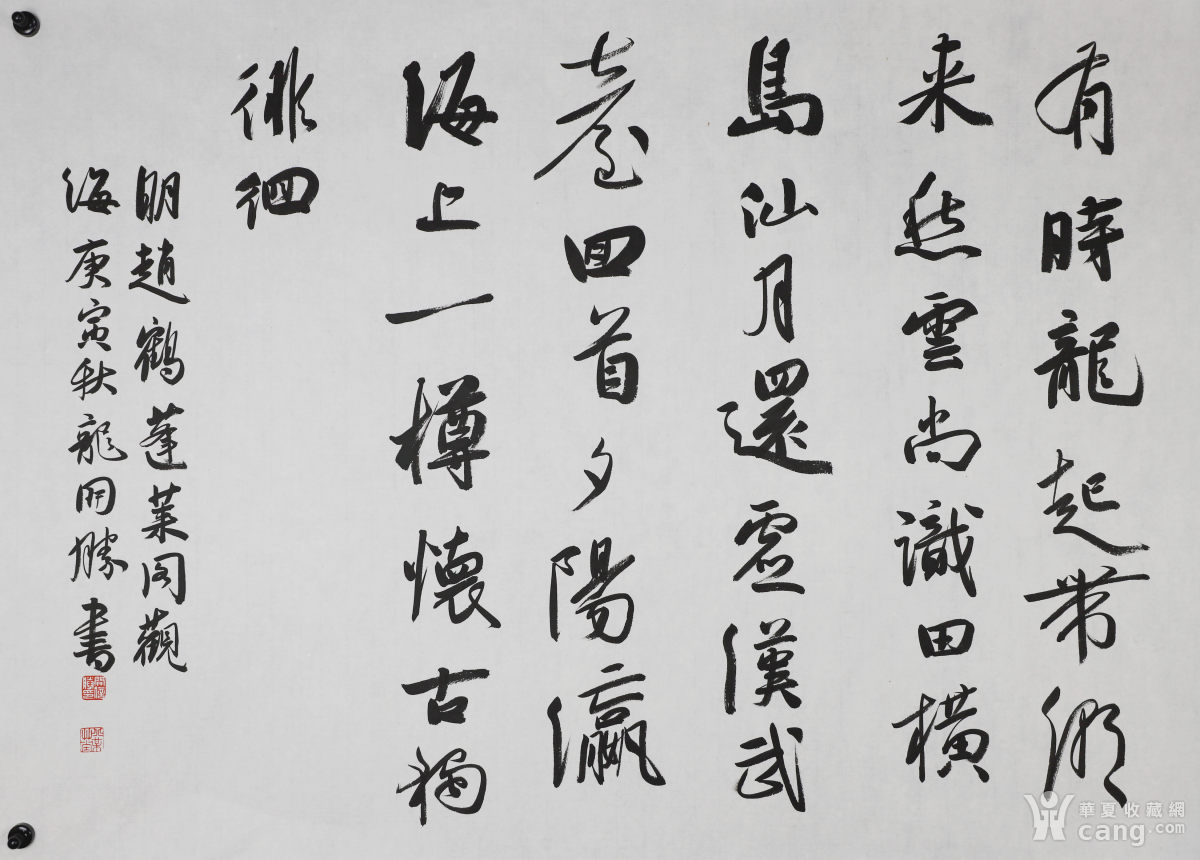 有時龍起帶潮
来愁雲尚識田橫
島汕月還虛漢武
臺回首夕陽瀛
海上一樽懷古獨
徘徊
明趙鶴蓬萊阁觀
海庚寅秋龍開勝書
華夏收藏網
cang.com